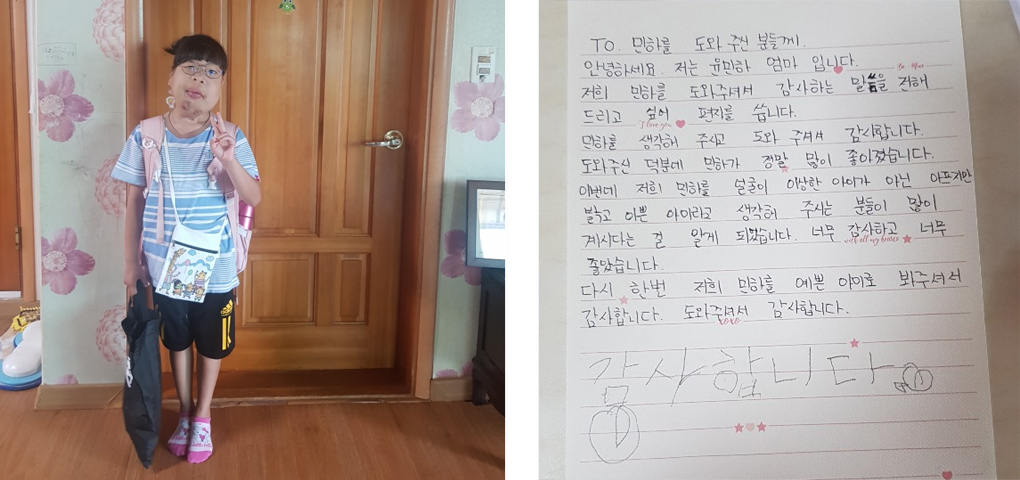 TO. 민하를 도와 주신 분들께.
안녕하세요. 저는 윤민하 엄마 입니다.
저희 민하를 도와주셔서 감사하는 말씀을 전해
드리고 싶어 편지를 씁니다.
I love you
민하를 생각해 주시고 도와 주셔서 감사합니다.
도와주신 덕분에 민하가 정말 많이 좋아졌습니다.
이번에 저희 민하를 얼굴이 이상한 아이가 아닌 아프지만
밝고 이쁜 아이라고 생각해 주시는 분들이 많이
계시다는 걸 알게 되었습니다. 너무 감사하고 너무
with all my hearts
좋았습니다.
다시 한번 저희 민하를 예쁜 아이로 봐주셔서
감사합니다. 도와주셔서 감사합니다.
xoxo
감사합니다